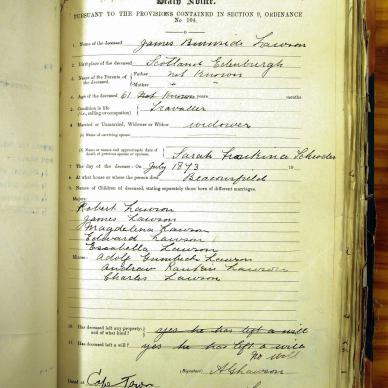 Death Notice.
PURSUANT TO THE PROVISIONS CONTAINED IN SECTION 9, ORDINANCE
No 104.
1. Name of the deceased James Lawson
2. Birthplace of the deceased Scotland Edinburgh
3. Names of the Parents of the deceased Father Not Known
Mother " "
4. Age of the deceased 61 Not Known years months
5. Condition in life (i.e., calling or occupation) Traveller
6. Married or Unmarried, Widower or Widow widower
(a) Name of surviving spouse
(b) Name or names and approximate date of death of previous spouse or spouses Sarah
7. The day of the decease: On July 1873 18
8. At what house or where the person died Beaconsfield
9. Names of Children of deceased, stating separately those born of different marriages.
Major:
Robert Lawson
James Lawson
Magdelina Lawson
Edward Lawson
Essabella Lawson
Minor: Adolf Lawson
Andrew Lawson
Charles Lawson
10. Has deceased left any property; and of what kind? yes he has left a will
11. Has deceased left a will? yes he has left a will
no will
(Signature)
Dated at Cape Town